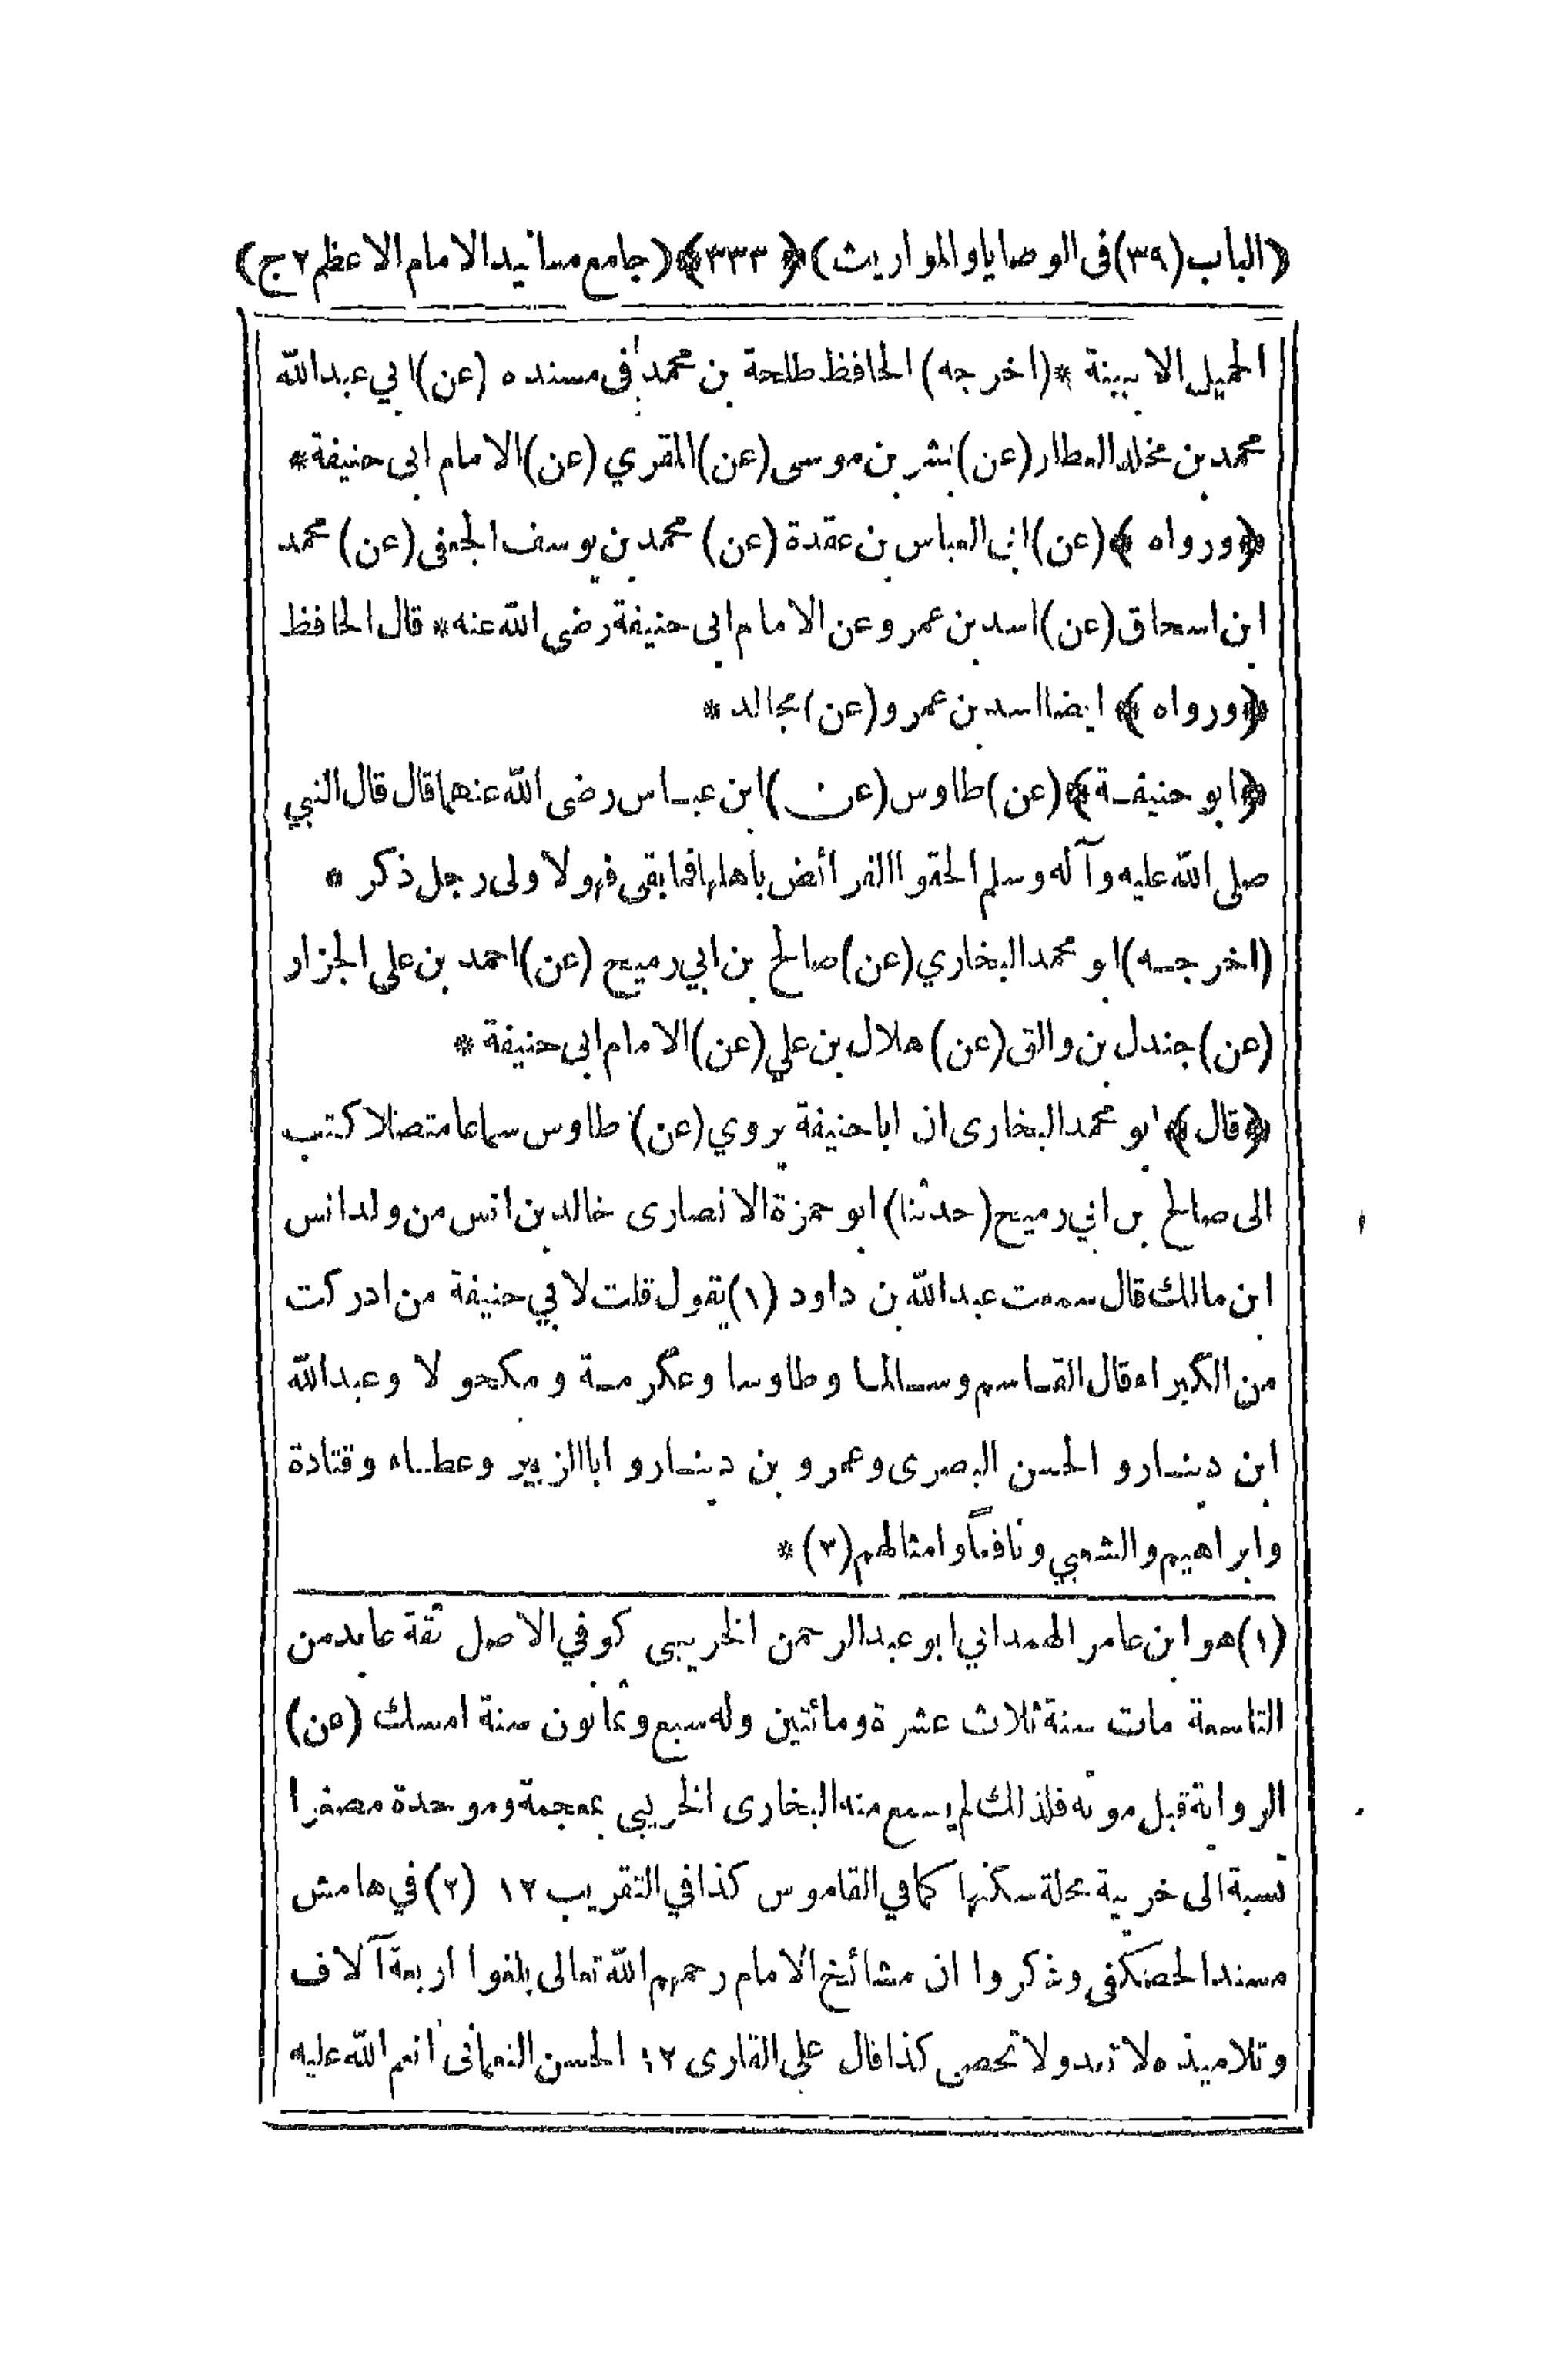 (الباب (٣٩) فى الوصايا والمواريث) ﴿ ٣٣٣ ﴾ (جامع مسانيد الامام الاعظم ٢ ج)
الحميل الا ببينة * (اخرجه) الحافظ طلحة بن محمد فى مسنده (عن) ابي عبدالله
محمد بن مخلد العطار (عن) بشر بن موسى (عن) المقري (عن) الامام ابى حنيفة *
﴿ ورواه ﴾ (عن) ابى العباس بن عقدة (عن) محمد بن يوسف الجعفى (عن) محمد
ابن اسحاق (عن) اسد بن عمرو عن الامام ابى حنيفة رضى الله عنه * قال الحافظ
﴿ ورواه ﴾ ايضا اسد بن عمرو (عن) مجالد *
﴿ ابو حنيفة ﴾ (عن) طاوس (عن) ابن عباس رضى الله عنهما قال قال النبي
صلى الله عليه وآله وسلم الحقوا الفرائض باهلها فما بقى فهو لا ولى رجل ذكر *
(اخرجه) ابو محمد البخاري (عن) صالح بن ابي رميح (عن) احمد بن على الجزار
(عن) جندل بن والق (عن) هلال بن علي (عن) الامام ابى حنيفة *
﴿ قال ﴾ ابو محمد البخارى ان ابا حنيفة يروي (عن) طاوس سماعا متصلا كتب
الى صالح بن ابي رميح (حدثنا) ابو حمزة الانصارى خالد بن انس من ولد انس
ابن مالك قال سمعت عبدالله بن داود (١) يقول قلت لابي حنيفة من ادركت
من الكبراء قال القاسم وسالما وطاوسا وعكرمة ومكحولا وعبدالله
ابن دينار والحسن البصرى وعمرو بن دينار وابا الزبير وعطاء وقتادة
وابراهيم والشعبي ونافعاً وامثالهم (٢) *
(١) هو ابن عامر الهمداني ابو عبدالرحمن الخريبى كوفي الاصل ثقة عابد من
التاسعة مات سنة ثلاث عشرة ومائتين وله سبع وثمانون سنة امسك (عن)
الرواية قبل موته فلذالك لم يسمع منه البخارى الخريبي بمعجمة وموحدة مصغرا
نسبة الى خريبة محلة سكنها كما في القاموس كذا في التقريب ١٢ (٢) في هامش
مسند الحصكفى وذكروا ان مشائخ الامام رحمهم الله تعالى بلغوا اربعة آلاف
وتلاميذه لا تعد ولا تحصى كذا قال على القارى ١٢ الحسن النعمانى انعم الله عليه